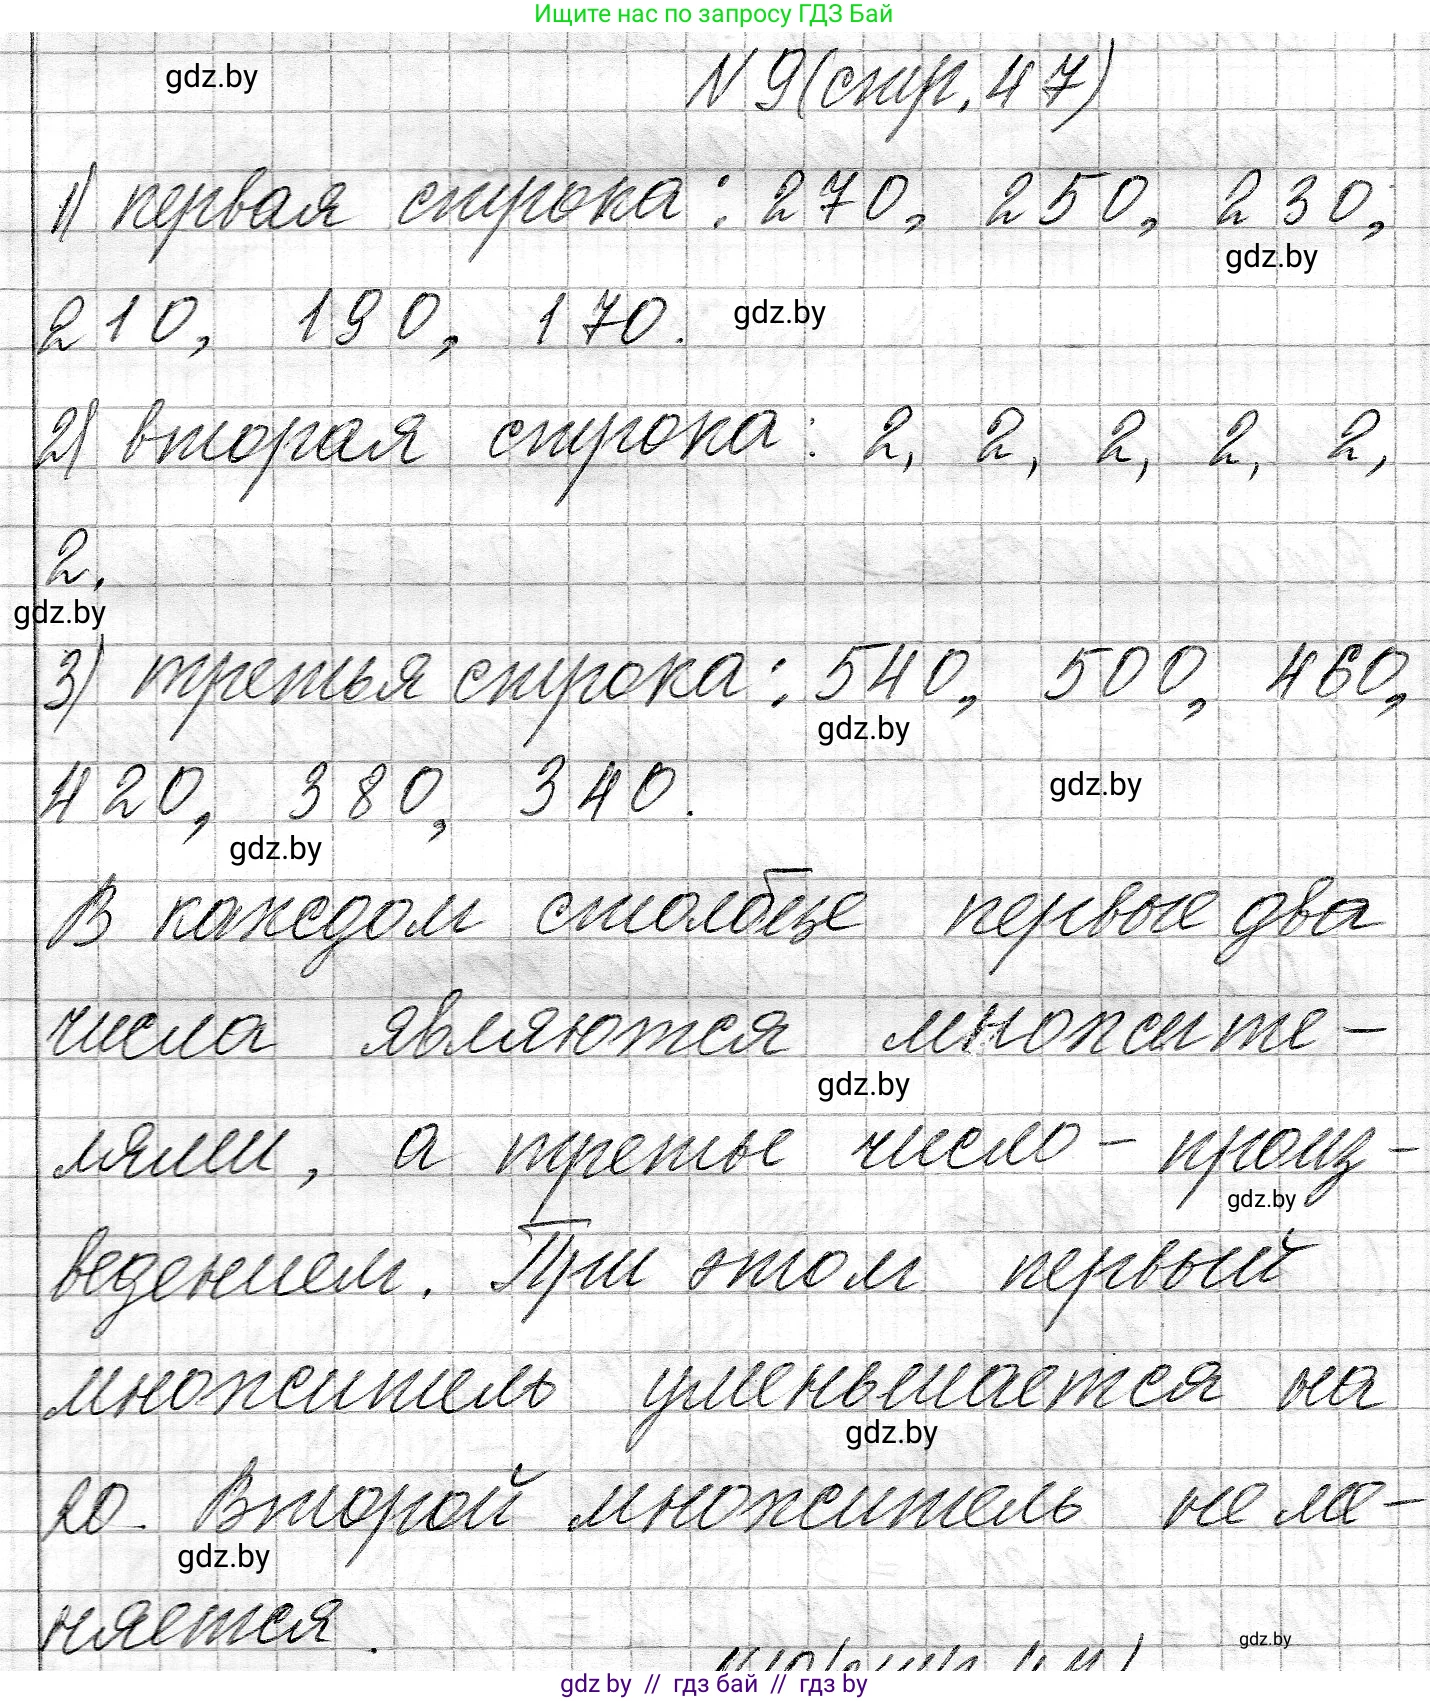 Ищите нас по запросу ГДЗ Бай
gdz.by
N 9 (стр. 47)
1) первая строка: 270, 250, 230,
gdz.by
210, 190, 170.
gdz.by
2) вторая строка: 2, 2, 2, 2, 2,
2.
gdz.by
3) третья строка: 540, 500, 460,
gdz.by
420, 380, 340.
gdz.by
gdz.by
В каждом столбце первые два
числа являются множите-
gdz.by
лями, а третье число - произ-
gdz.by
ведением. При этом первый
множитель уменьшается на
gdz.by
20. Второй множитель не ме-
gdz.by
няется.
gdz.by
gdz.by // гдз бай // гдз by